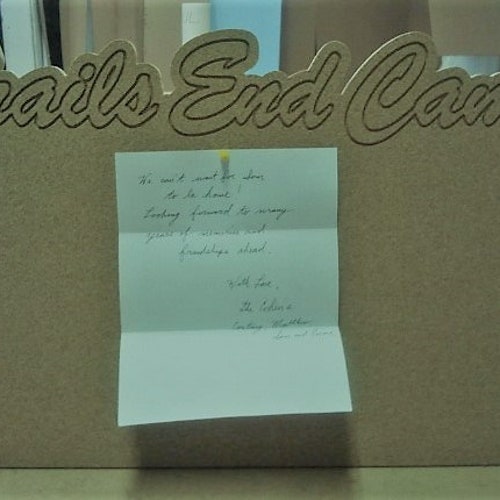 rails End Cam
We can't wait for Sam
to be home!
Looking forward to many
years of memories and
friendships ahead.
With Love,
The Cohens
Matthew
and